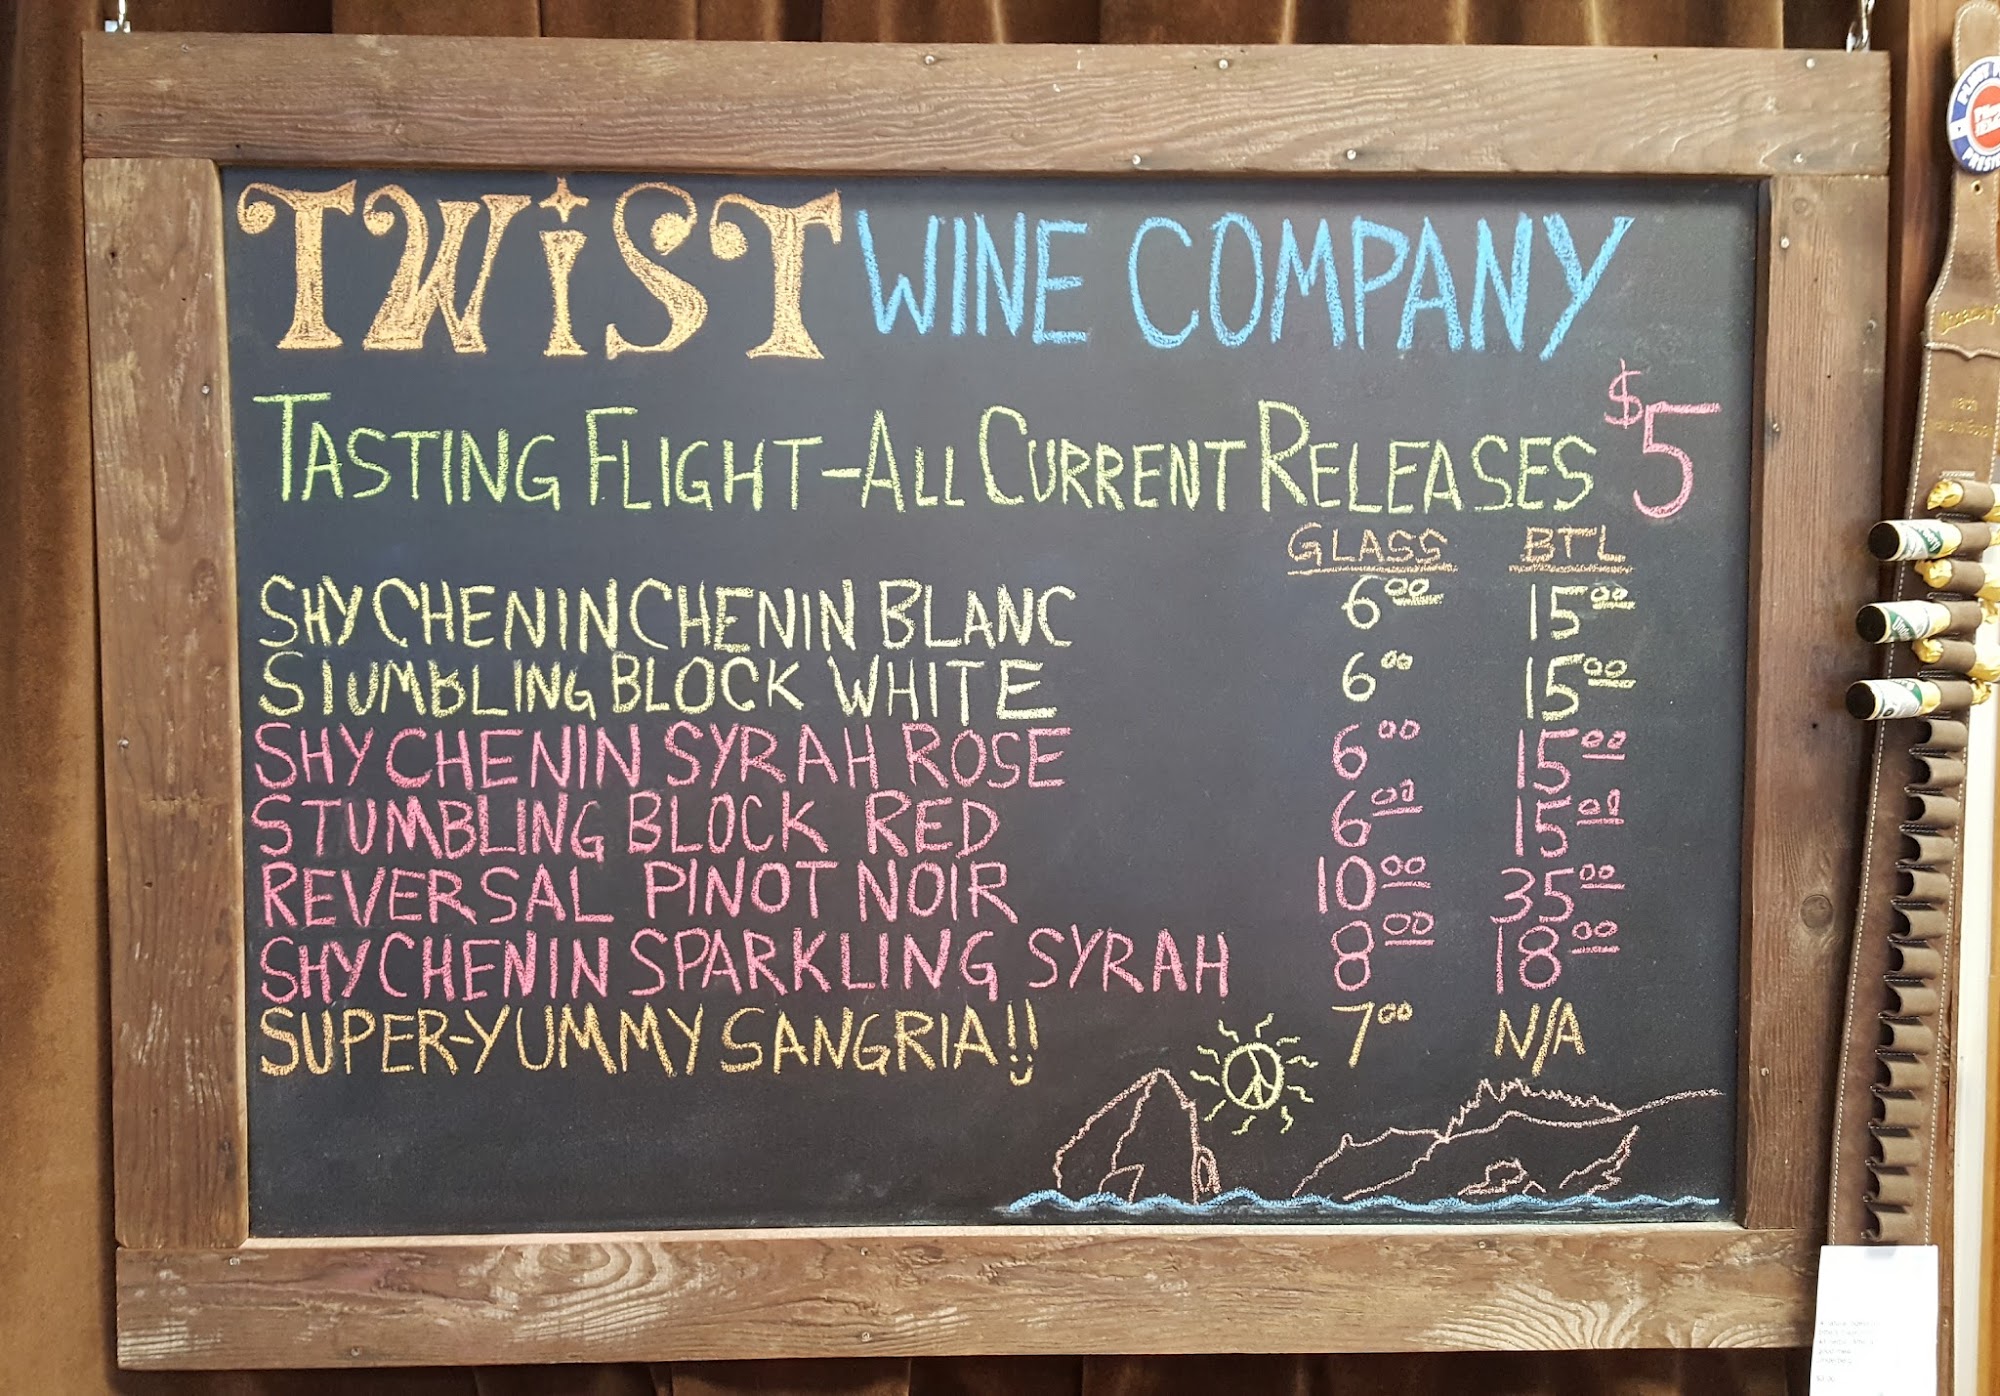 TWiST WINE COMPANY
TASTING FLIGHT-ALL CURRENT RELEASES $5
GLASS BTL
SHY CHENIN CHENIN BLANC 6.00 15.00
STUMBLING BLOCK WHITE 6.00 15.00
SHY CHENIN SYRAH ROSE 6.00 15.00
STUMBLING BLOCK RED 6.00 15.00
REVERSAL PINOT NOIR 10.00 35.00
SHY CHENIN SPARKLING SYRAH 8.00 18.00
SUPER-YUMMY SANGRIA!! 7.00 N/A